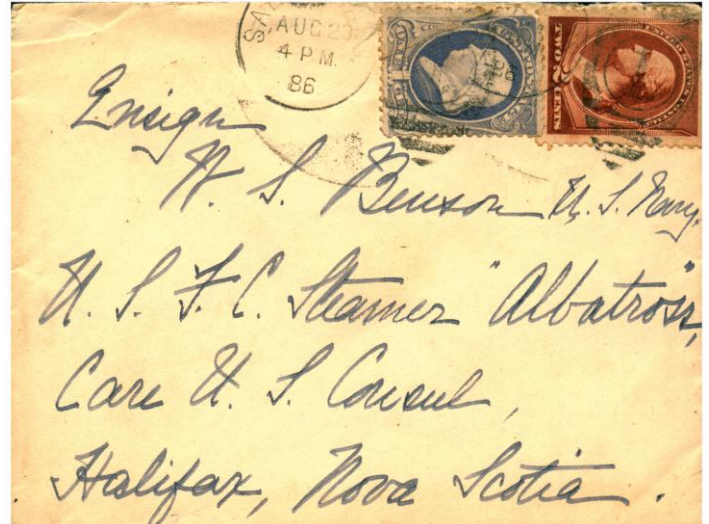 AUG 2
4 P M.
86
TWO CENTS
Ensign
W. S. Benson U. S. Navy.
U. S. F. C. Steamer "Albatross",
Care U. S. Consul,
Halifax, Nova Scotia.